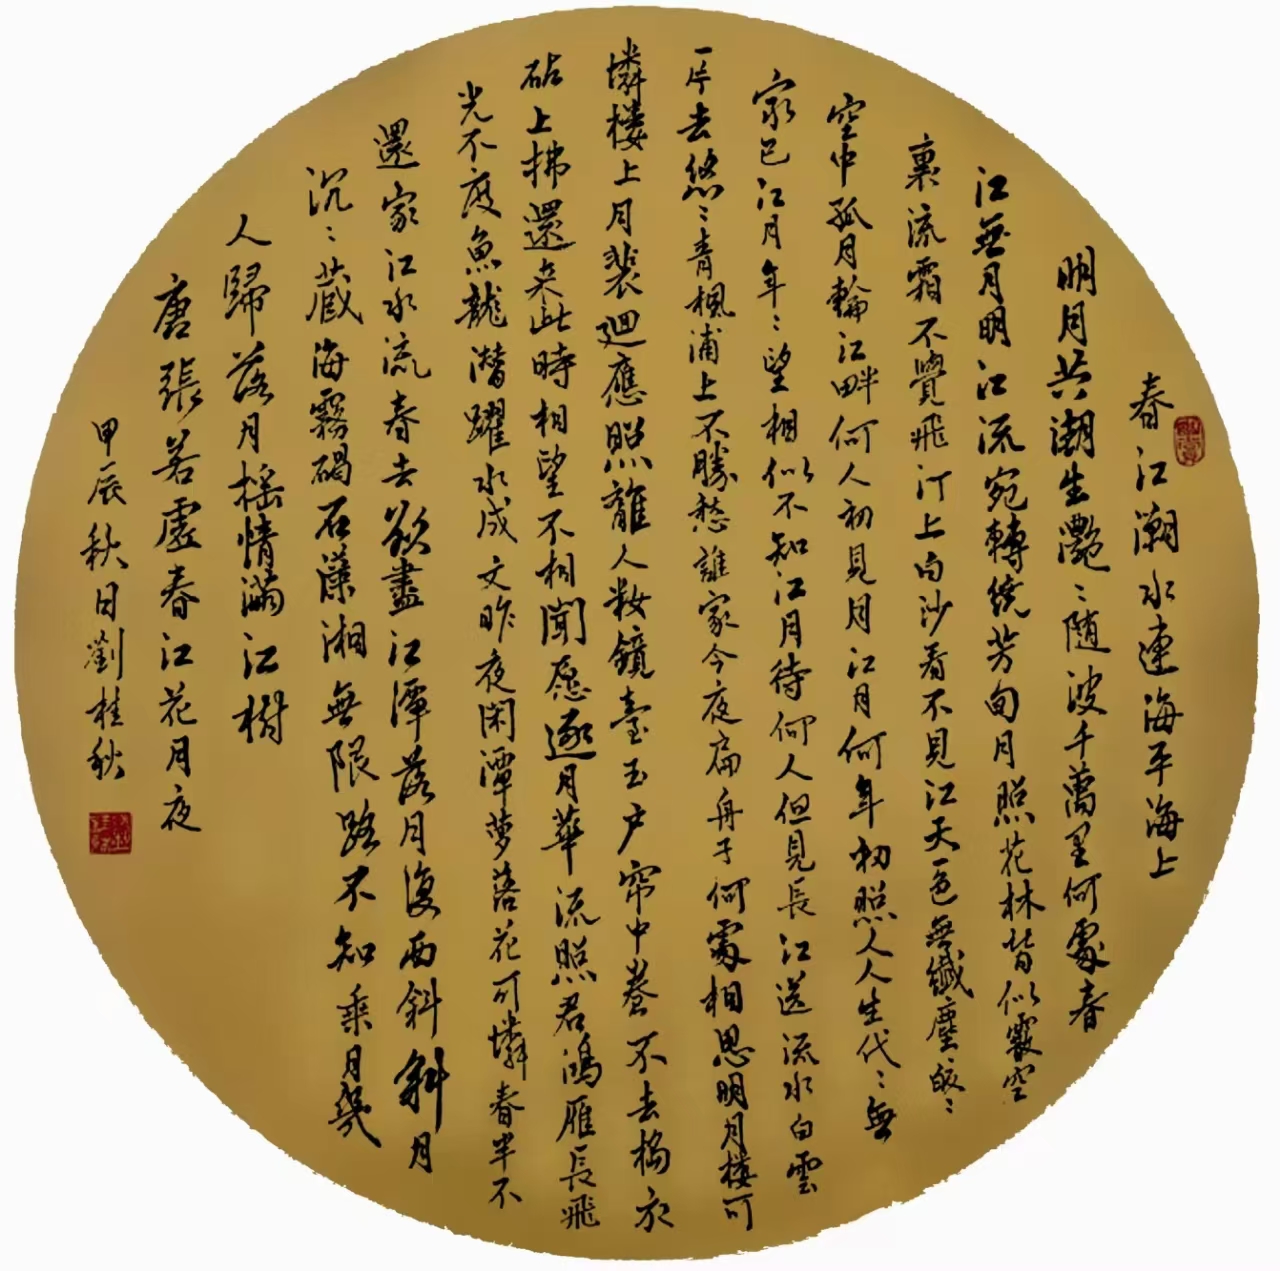 春江潮水連海平海上
明月共潮生灔〻随波千萬里何處春
江無月明江流宛轉繞芳甸月照花林皆似霰空
裏流霜不覺飛汀上白沙看不見江天一色無纖塵皎〻
空中孤月輪江畔何人初見月江月何年初照人人生代〻無
家已江月年〻望相似不知江月待何人但見長江送流水白雲
一片去悠〻青楓浦上不勝愁誰家今夜扁舟子何處相思明月樓可
憐楼上月裴迴應照離人妝鏡臺玉户帘中卷不去搗衣
砧上拂還来此時相望不相聞愿逐月華流照君鴻雁長飛
光不度魚龍潛躍水成文昨夜閑潭夢落花可憐春半不
還家江水流春去欲盡江潭落月復西斜斜月
沉〻藏海霧碣石瀟湘無限路不知乘月幾
人歸落月摇情滿江樹
唐張若虚春江花月夜
甲辰秋日劉桂秋